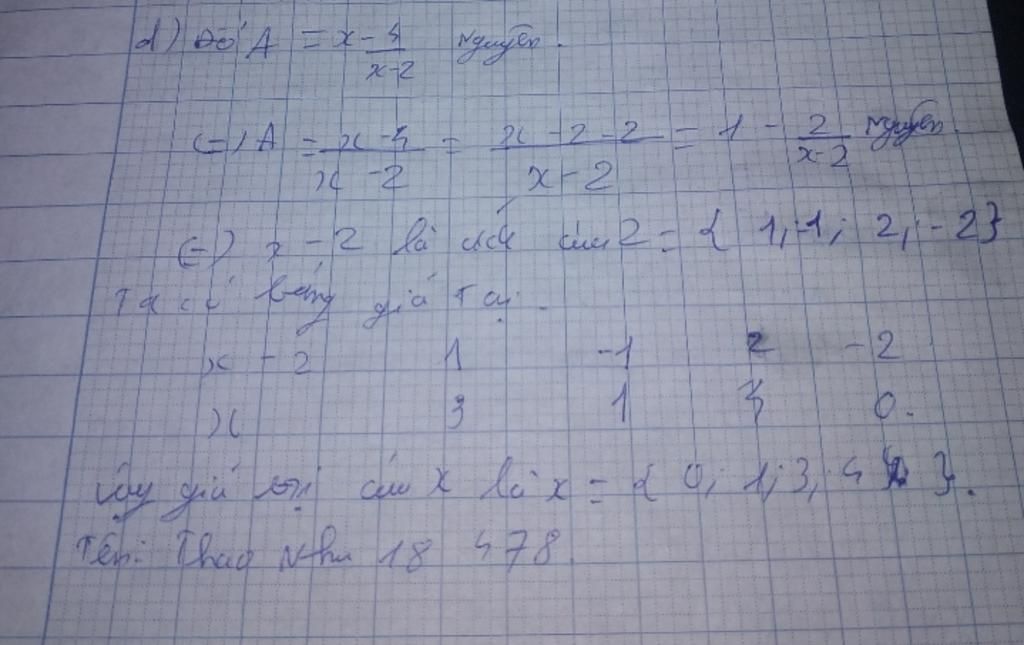 d) Để A = x-4/x-2 nguyên.
(=) A = x-4/x-2 = x-2-2/x-2 = 1 - 2/x-2 nguyên.
(=) x-2 là ước của 2 = { 1; -1; 2; -2}
Ta có bảng giá trị.
x-2 1 -1 2 -2
x 3 1 4 0.
Vậy giá trị của x là x = { 0; 1; 3; 4 }.
Tên: Thao Như 18 478